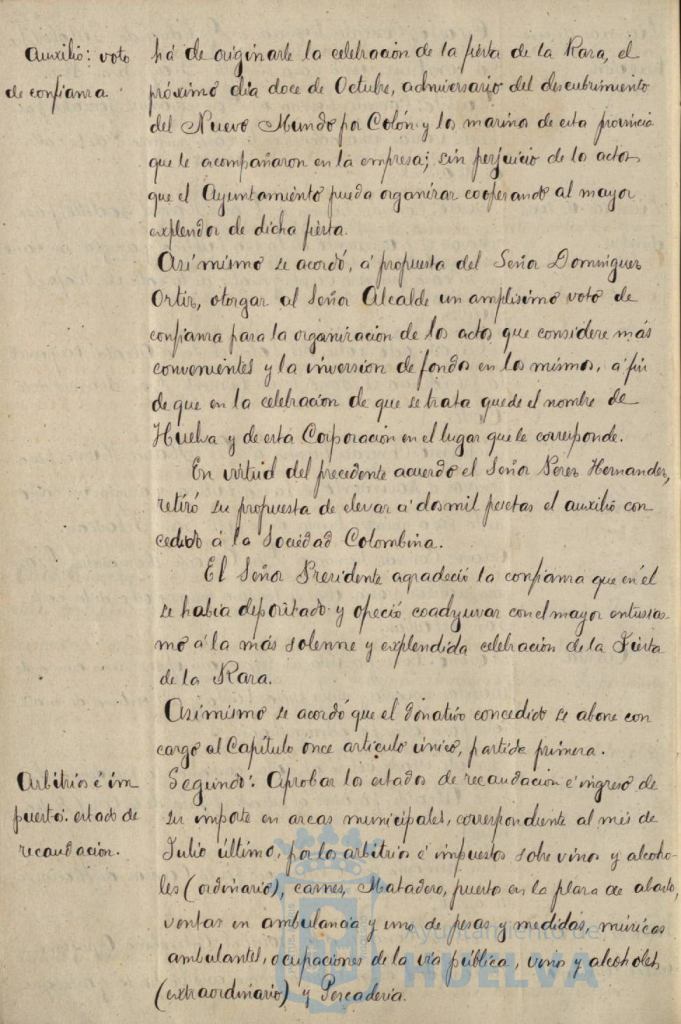 Auxilio: voto
de confianza.
há de originarle la celebración de la fiesta de la Raza, el
próximo dia doce de Octubre, adniversario del descubrimiento
del Nuevo Mundo por Colón y los marinos de esta provincia
que le acompañaron en la empresa; sin perjuicio de los actos
que el Ayuntamiento pueda organizar cooperando al mayor
explendor de dicha fiesta.
Asi mismo se acordó, á propuesta del Señor Dominguez
Ortiz, otorgar al Señor Alcalde un amplisimo voto de
confianza para la organizacion de los actos que considere más
convenientes y la inversion de fondos en los mismos, á fin
de que en la celebracion de que se trata quede el nombre de
Huelva y de esta Corporación en el lugar que le corresponde.
En virtud del precedente acuerdo el Señor Perez Hernandez,
retiró su propuesta de elevar á dos mil pesetas el auxilio con
cedido á la Sociedad Colombina.
El Señor Presidente agradeció la confianza que en él
se habia depositado y ofreció coadyuvar con el mayor entusias-
mo á la más solemne y explendida celebración de la Fiesta
de la Raza.
Asimismo se acordó que el donativo concedido se abone con
cargo al Capítulo once articulo único, partida primera.
Arbitrios é im
puestos: estado de
recaudación.
Segundo: Aprobar los estados de recaudación é ingreso de
su importe en arcas municipales, correspondiente al més de
Julio último, por los arbitrios é impuestos sobre vinos y alcoho-
les (ordinario), carnes, Matadero, puestos en la plaza de abasto,
ventas en ambulancia y uso de pesas y medidas, músicos
ambulantes, ocupaciones de la via pública, vinos y alcoholes
(extraordinario) y Pescaderia.
Ayuntamiento de
HUELVA